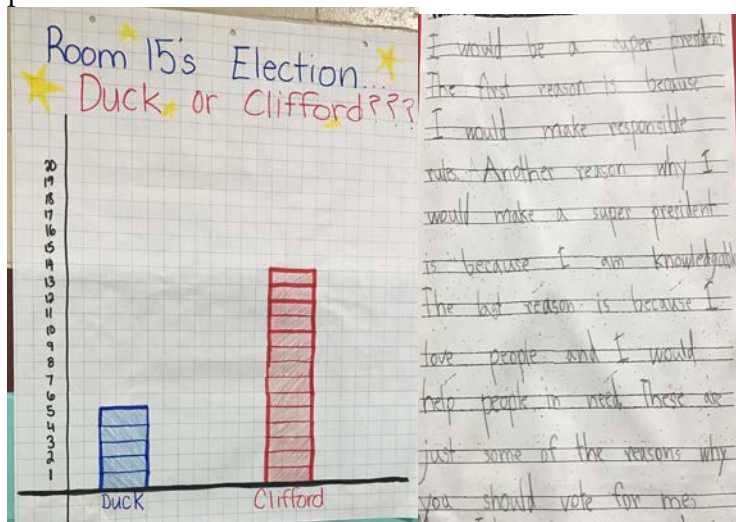 Room 15's Election...
Duck or Clifford???
20
19
18
17
16
15
14
13
12
11
10
9
8
7
6
5
4
3
2
1
DUCK
Clifford
I would be a super president
The first reason is because
I would make responsible
rules. Another reason why I
would make a super president
is because I am knowledgable
The last reason is because I
love people and I would
help people in need. These are
just some of the reasons why
you should vote for me.